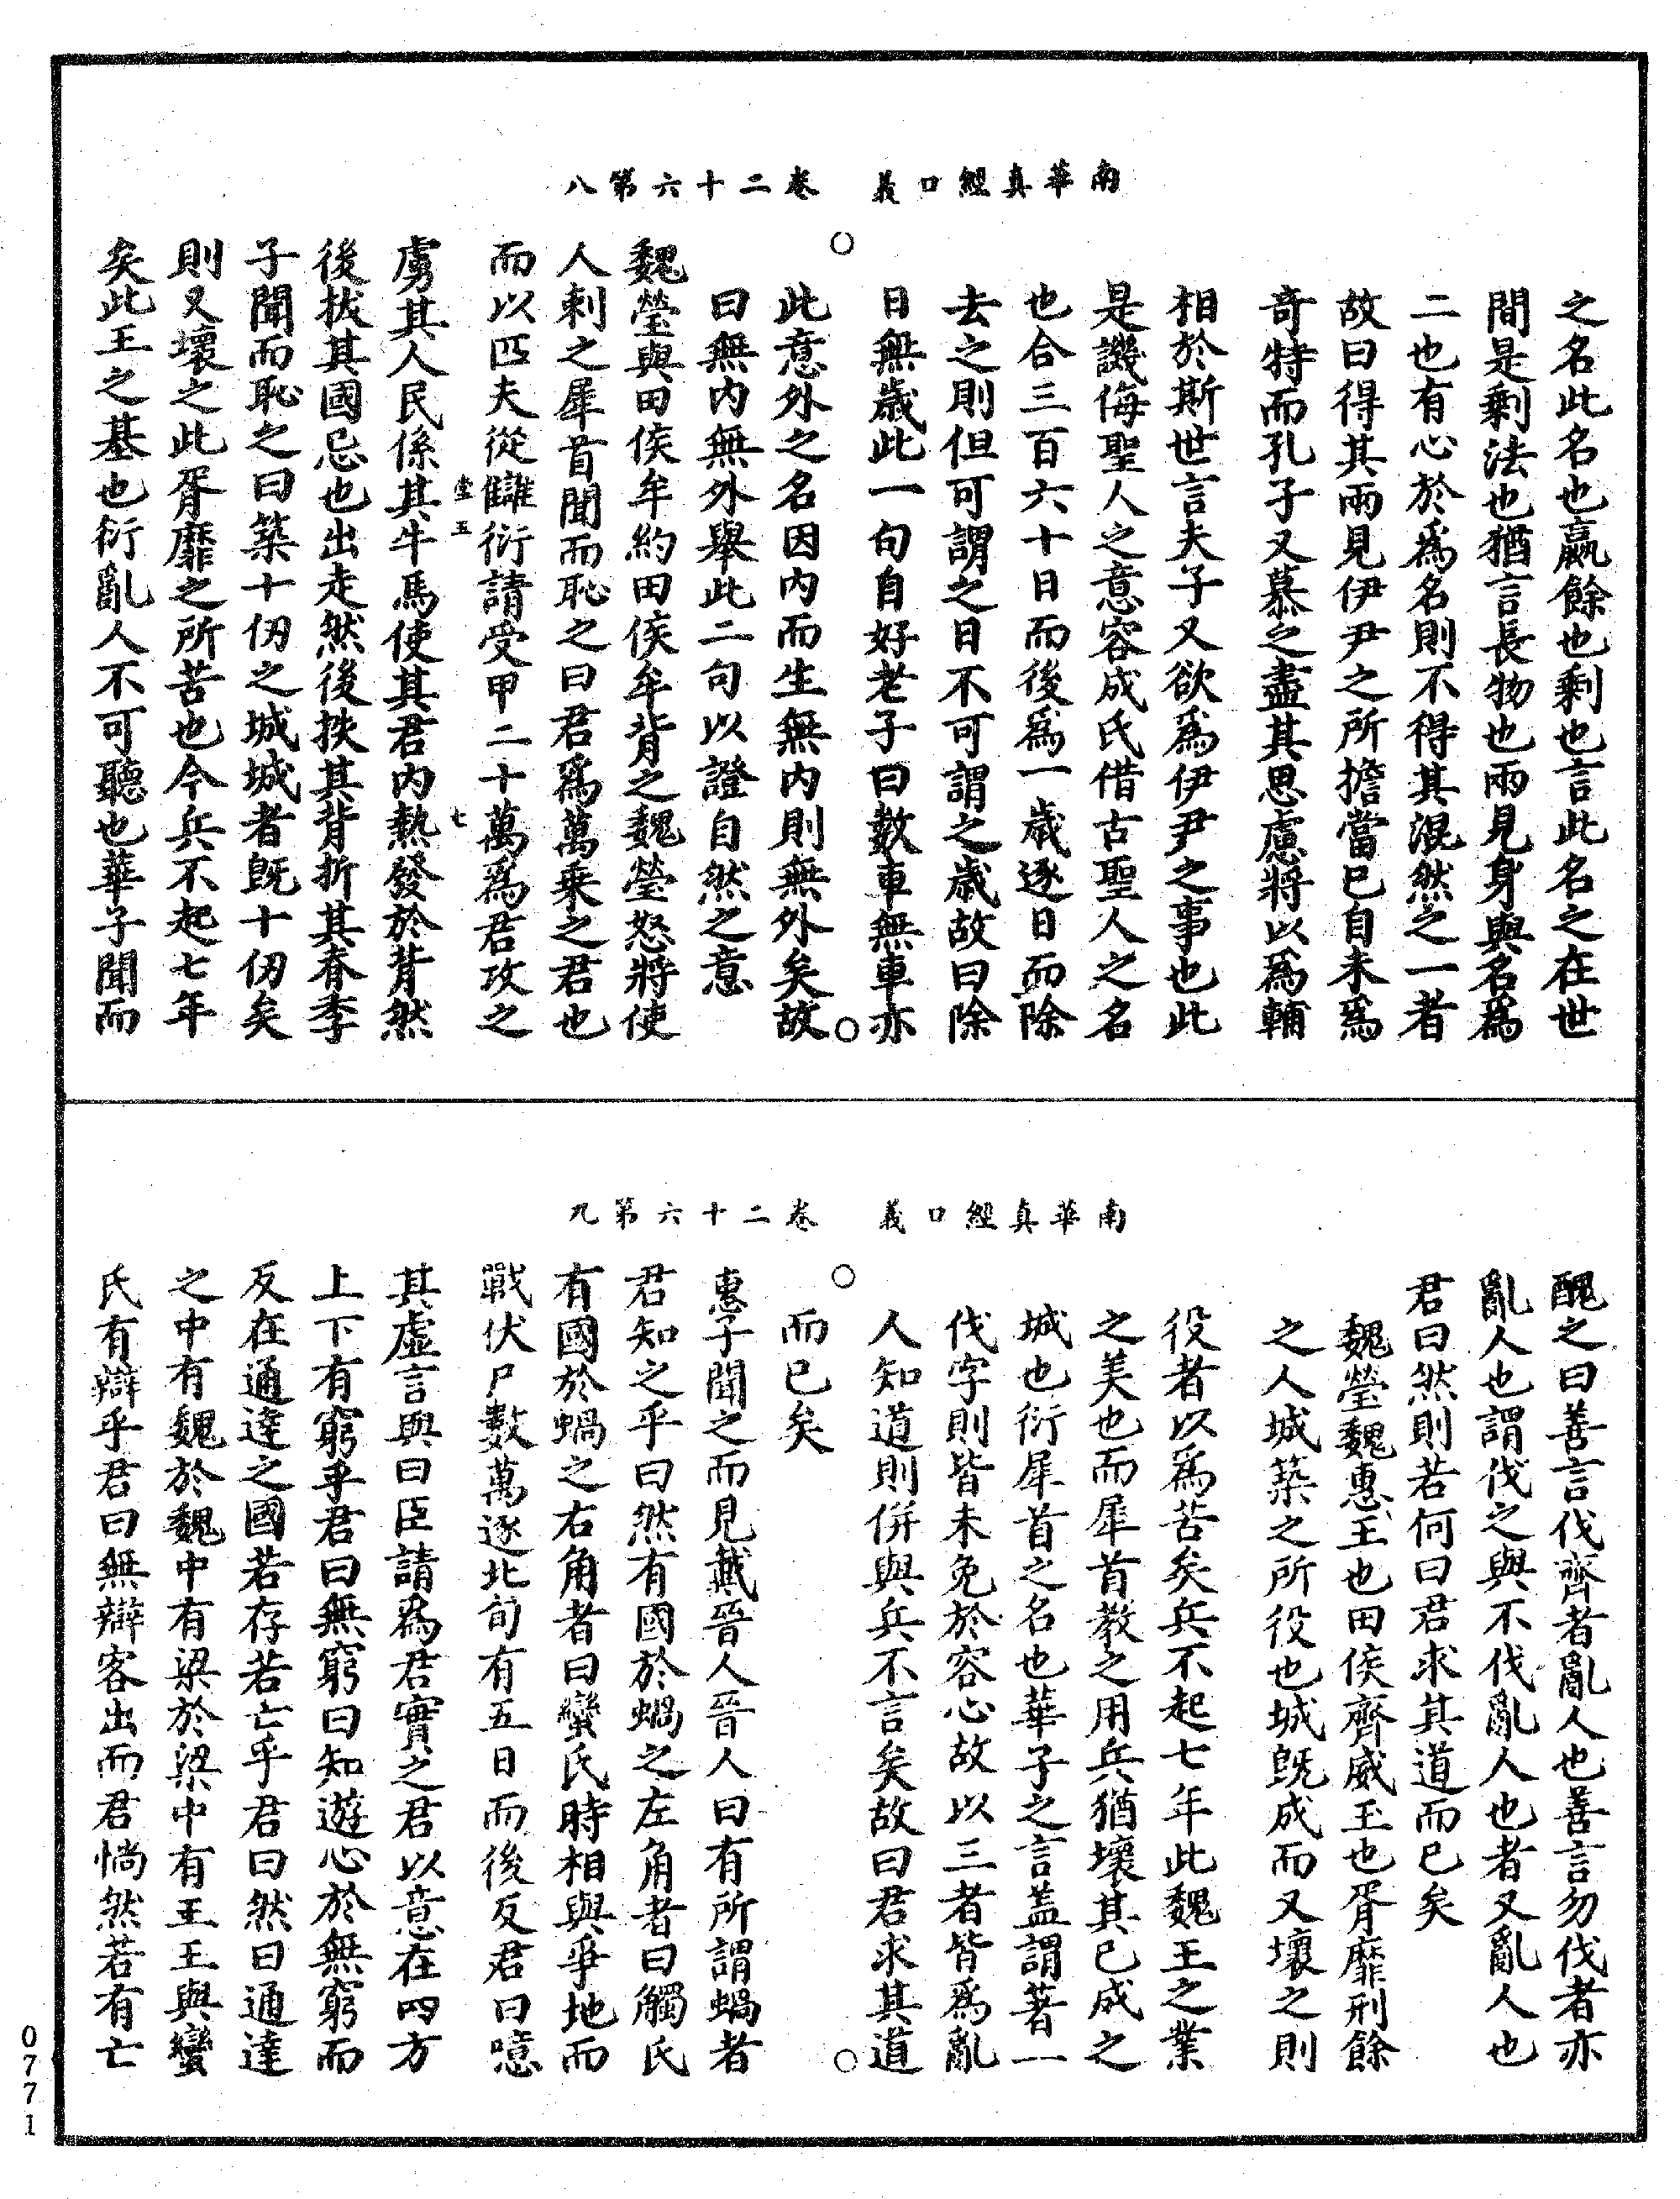 南華真經口義　卷二十六第八
之名此名也嬴餘也剩也言此名之在世
間是剩法也猶言長物也兩見身與名爲
二也有心於爲名則不得其混然之一者
故曰得其兩見伊尹之所擔當已自未爲
奇特而孔子又慕之盡其思慮將以爲輔
相於斯世言夫子又欲爲伊尹之事也此
是譏侮聖人之意容成氏借古聖人之名
也合三百六十日而後爲一歲逐日而除
去之則但可謂之日不可謂之歲故曰除
日無歲此一句自好老子曰數車無車亦
此意外之名因内而生無内則無外矣故
曰無内無外舉此二句以證自然之意
魏瑩與田侯牟約田侯牟背之魏瑩怒將使
人刺之犀首聞而恥之曰君爲萬乘之君也
而以匹夫從讎衍請受甲二十萬爲君攻之
堂五　七
虜其人民係其牛馬使其君内熱發於背然
後拔其國忌也出走然後抶其背折其脊季
子聞而恥之曰築十仞之城城者既十仞矣
則又壞之此胥靡之所苦也今兵不起七年
矣此王之基也衍亂人不可聽也華子聞而
南華真經口義　卷二十六第九
醜之曰善言伐齊者亂人也善言勿伐者亦
亂人也謂伐之與不伐亂人也者又亂人也
君曰然則若何曰君求其道而已矣
魏瑩魏惠王也田侯齊威王也胥靡刑餘
之人城築之所役也城既成而又壞之則
役者以爲苦矣兵不起七年此魏王之業
之美也而犀首教之用兵猶壞其已成之
城也衍犀首之名也華子之言盖謂著一
伐字則皆未免於容心故以三者皆爲亂
人知道則併與兵不言矣故曰君求其道
而已矣
惠子聞之而見戴晉人晉人曰有所謂蝸者
君知之乎曰然有國於蝸之左角者曰觸氏
有國於蝸之右角者曰蠻氏時相與爭地而
戰伏尸數萬逐北旬有五日而後反君曰噫
其虛言與曰臣請爲君實之君以意在四方
上下有窮乎君曰無窮曰知遊心於無窮而
反在通達之國若存若亡乎君曰然曰通達
之中有魏於魏中有梁於梁中有王王與蠻
氏有辯乎君曰無辯客出而君惝然若有亡
0771